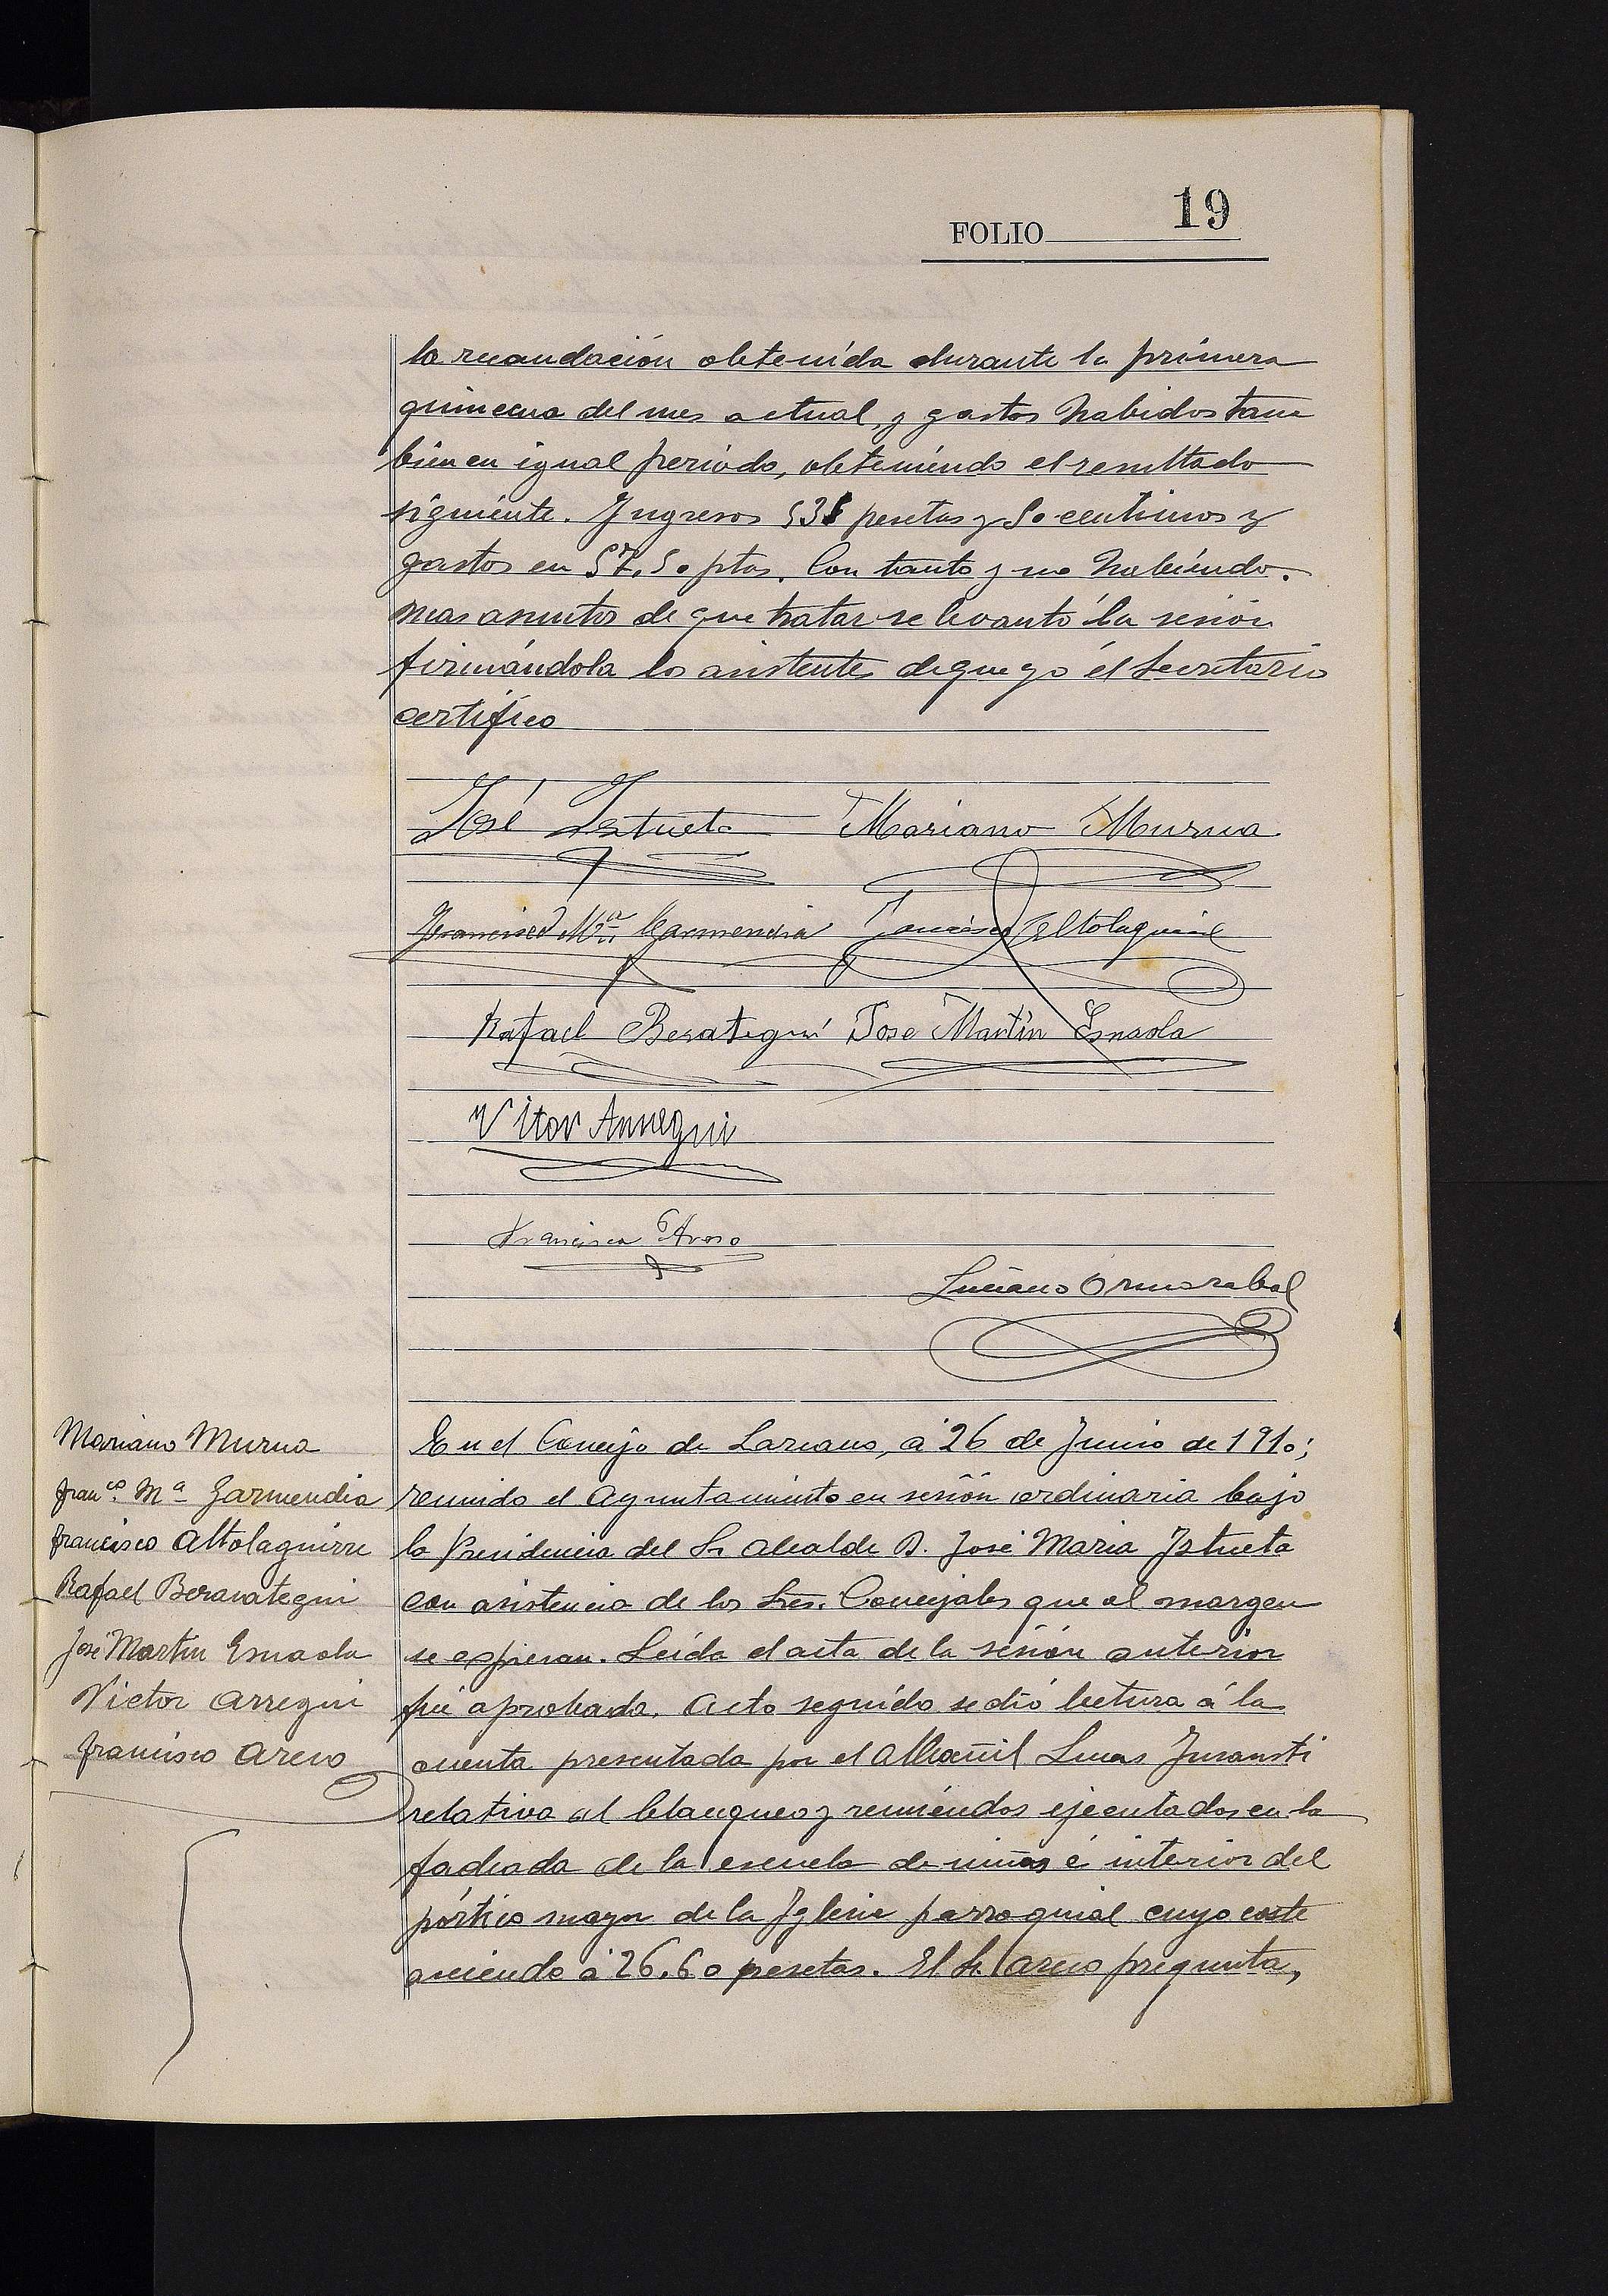 FOLIO 19
la recaudación obtenida durante la primera
quincena del mes actual, y gastos habidos tam
bien en igual periodo, obteniendo el resultado
siguiente. Ingresos pesetas y 50 centimos y
gastos en 57,50 ptas. Con tanto y no habiendo.
mas asuntos de que tratar se levantó la sesión
firmándola los asistentes de que yó él Secretario
certifico
José Istueta Mariano Murua
Francisco Mª Garmendia Francisco Altolaguirre
Rafael Berategui Jose Martín Esnaola
Vitor Arregui
Francisco Areso
Luciano Ormazabal
Mariano Murua
Franco. Mª Garmendia
Francisco Altolaguirre
Rafael Beraategui
José Martin Esnaola
Victor Arregui
Francisco Areso
En el Concejo de Lazcano, á 26 de Junio de 1910;
reunido el Ayuntamiento en sesión ordinaria bajo
la Presidencia del Sr Alcalde D. José Maria Istueta
con asistencia de los Sres. Concejales que al margen
se expresan. Leida el acta de la sesión anterior
fué aprobada. Acto seguido se dió lectura á la
cuenta presentada por el Albañil Lucas Insausti
relativa al blanqueo y remiendos ejecutados en la
fachada de la escuela de niñas é interior del
pórtico mayor de la Iglesia parroquial cuyo coste
asciende á 26.60 pesetas. El Sr. Areso pregunta,